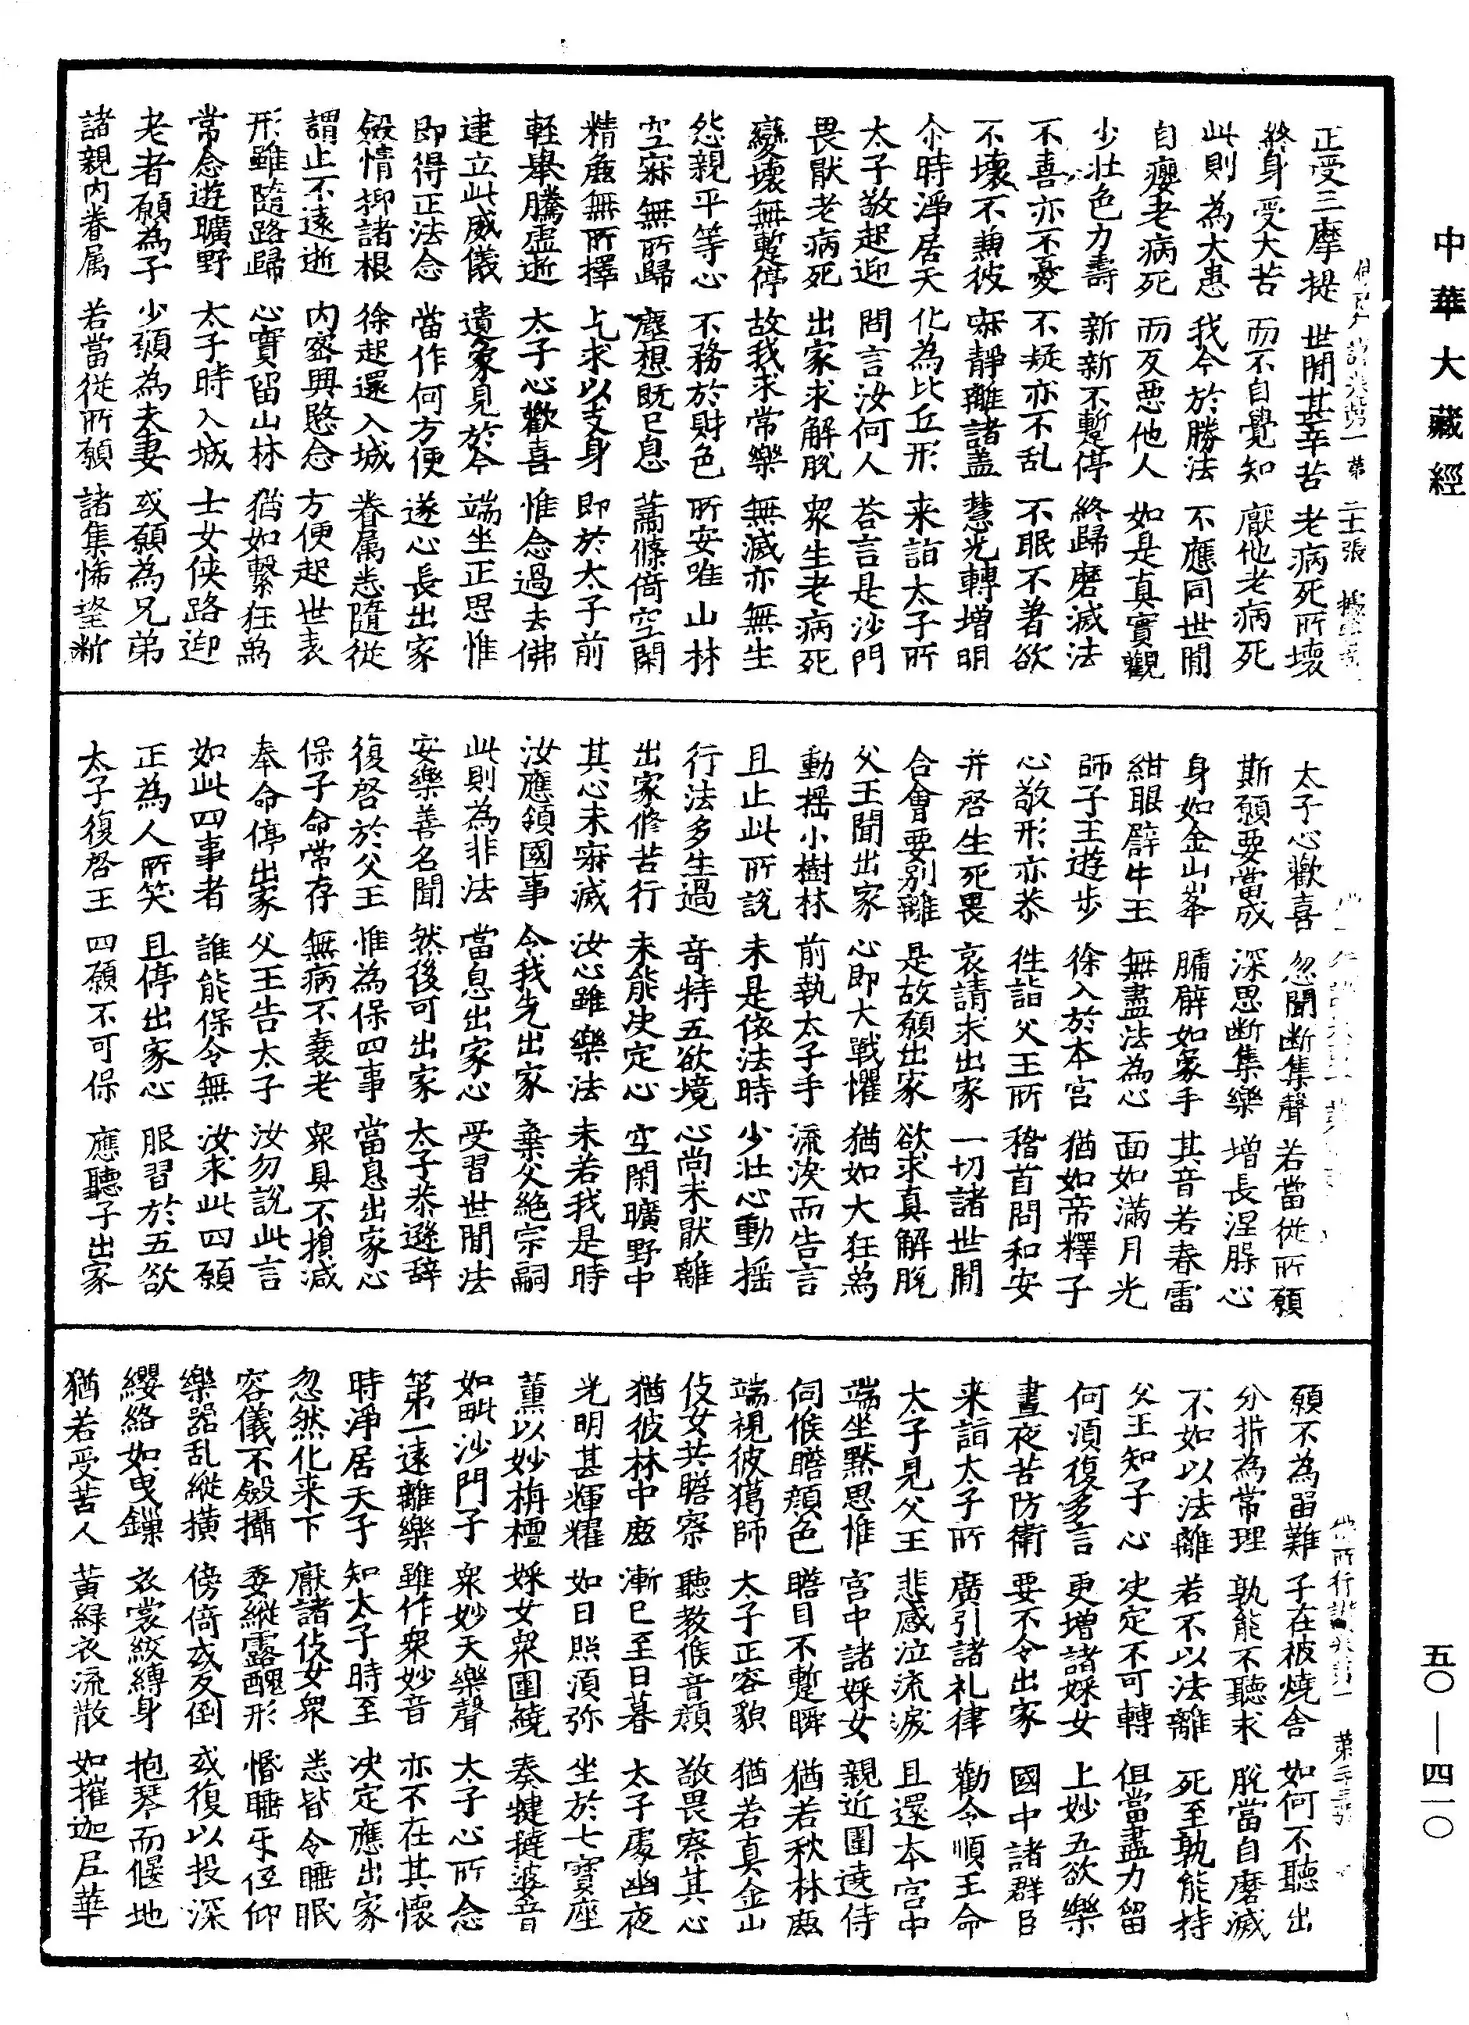 中華大藏經
五〇—四一〇
正受三摩提 世間甚辛苦 老病死所壞
終身受大苦 而不自覺知 厭他老病死
此則為大患 我今於勝法 不應同世間
自癭老病死 而反惡他人 如是真實觀
少壯色力壽 新新不暫停 終歸磨滅法
不喜亦不憂 不疑亦不乱 不眠不著欲
不壞不兼彼 寂靜離諸蓋 慧光轉增明
尒時淨居天 化為比丘形 来詣太子所
太子敬起迎 問言汝何人 荅言是沙門
畏猒老病死 出家求解脫 衆生老病死
變壞無暫停 故我求常樂 無滅亦無生
怨親平等心 不務於財色 所安唯山林
空寂無所歸 塵想既已息 蕭條倚空閑
精麁無所擇 乞求以支身 即於太子前
輕舉騰虛逝 太子心歡喜 惟念過去佛
建立此威儀 遺象見於今 端坐正思惟
即得正法念 當作何方便 遂心長出家
斂情抑諸根 徐起還入城 眷属悉隨從
謂止不遠逝 內密興愍念 方便起世表
形雖隨路歸 心實留山林 猶如繫狂為
常念遊曠野 太子時入城 士女俠路迎
老者願為子 少願為夫妻 或願為兄弟
諸親內眷属 若當從所願 諸集悕望斷
太子心歡喜 忽聞斷集聲 若當從所願
斯願要當成 深思斷集樂 增長涅槃心
身如金山峯 臑臂如象手 其音若春雷
紺眼譬牛王 無盡法為心 面如滿月光
師子王遊步 徐入於本宮 猶如帝釋子
心敬形亦恭 往詣父王所 稽首問和安
并啓生死畏 哀請求出家 一切諸世間
合會要別離 是故願出家 欲求真解脫
父王聞出家 心即大戰懼 猶如大狂為
動搖小樹林 前執太子手 流淚而告言
且止此所說 未是依法時 少壯心動搖
行法多生過 奇特五欲境 心尚未猒離
出家修苦行 未能决定心 空閑曠野中
其心未寂滅 汝心雖樂法 未若我是時
汝應領國事 令我先出家 棄父絕宗嗣
此則為非法 當息出家心 受習世間法
安樂善名聞 然後可出家 太子恭遜辞
復啓於父王 惟為保四事 當息出家心
保子命常存 無病不衰老 衆具不損減
奉命停出家 父王告太子 汝勿說此言
如此四事者 誰能保令無 汝求此四願
正為人所笑 且停出家心 服習於五欲
太子復啓王 四願不可保 應聽子出家
願不為留難 子在被燒舍 如何不聽出
分析為常理 孰能不聽求 脫當自磨滅
不如以法離 若不以法離 死至孰能持
父王知子心 决定不可轉 但當盡力留
何須復多言 更增諸婇女 上妙五欲樂
晝夜苦防衛 要不令出家 國中諸群臣
来詣太子所 廣引諸礼律 勸令順王命
太子見父王 悲感泣流淚 且還本宮中
端坐默思惟 宮中諸婇女 親近圍遶侍
伺候瞻顏色 矚目不暫瞬 猶若秋林鹿
端視彼獵師 太子正容貌 猶若真金山
伎女共瞻察 聽教候音顏 敬畏察其心
猶彼林中鹿 漸已至日暮 太子處幽夜
光明甚輝耀 如日照須弥 坐於七寶座
薰以妙栴檀 婇女衆圍繞 奏犍撻婆音
如毗沙門子 衆妙天樂聲 太子心所念
第一遠離樂 雖作衆妙音 亦不在其懷
時淨居天子 知太子時至 决定應出家
忽然化来下 厭諸伎女衆 悉皆令睡眠
容儀不斂攝 委縱露醜形 惛睡互伍仰
樂器乱縱橫 傍倚或反倒 或復以投深
纓絡如曳鏁 衣裳絞縛身 抱琴而偃地
猶若受苦人 黃緑衣流散 如摧迦尼華